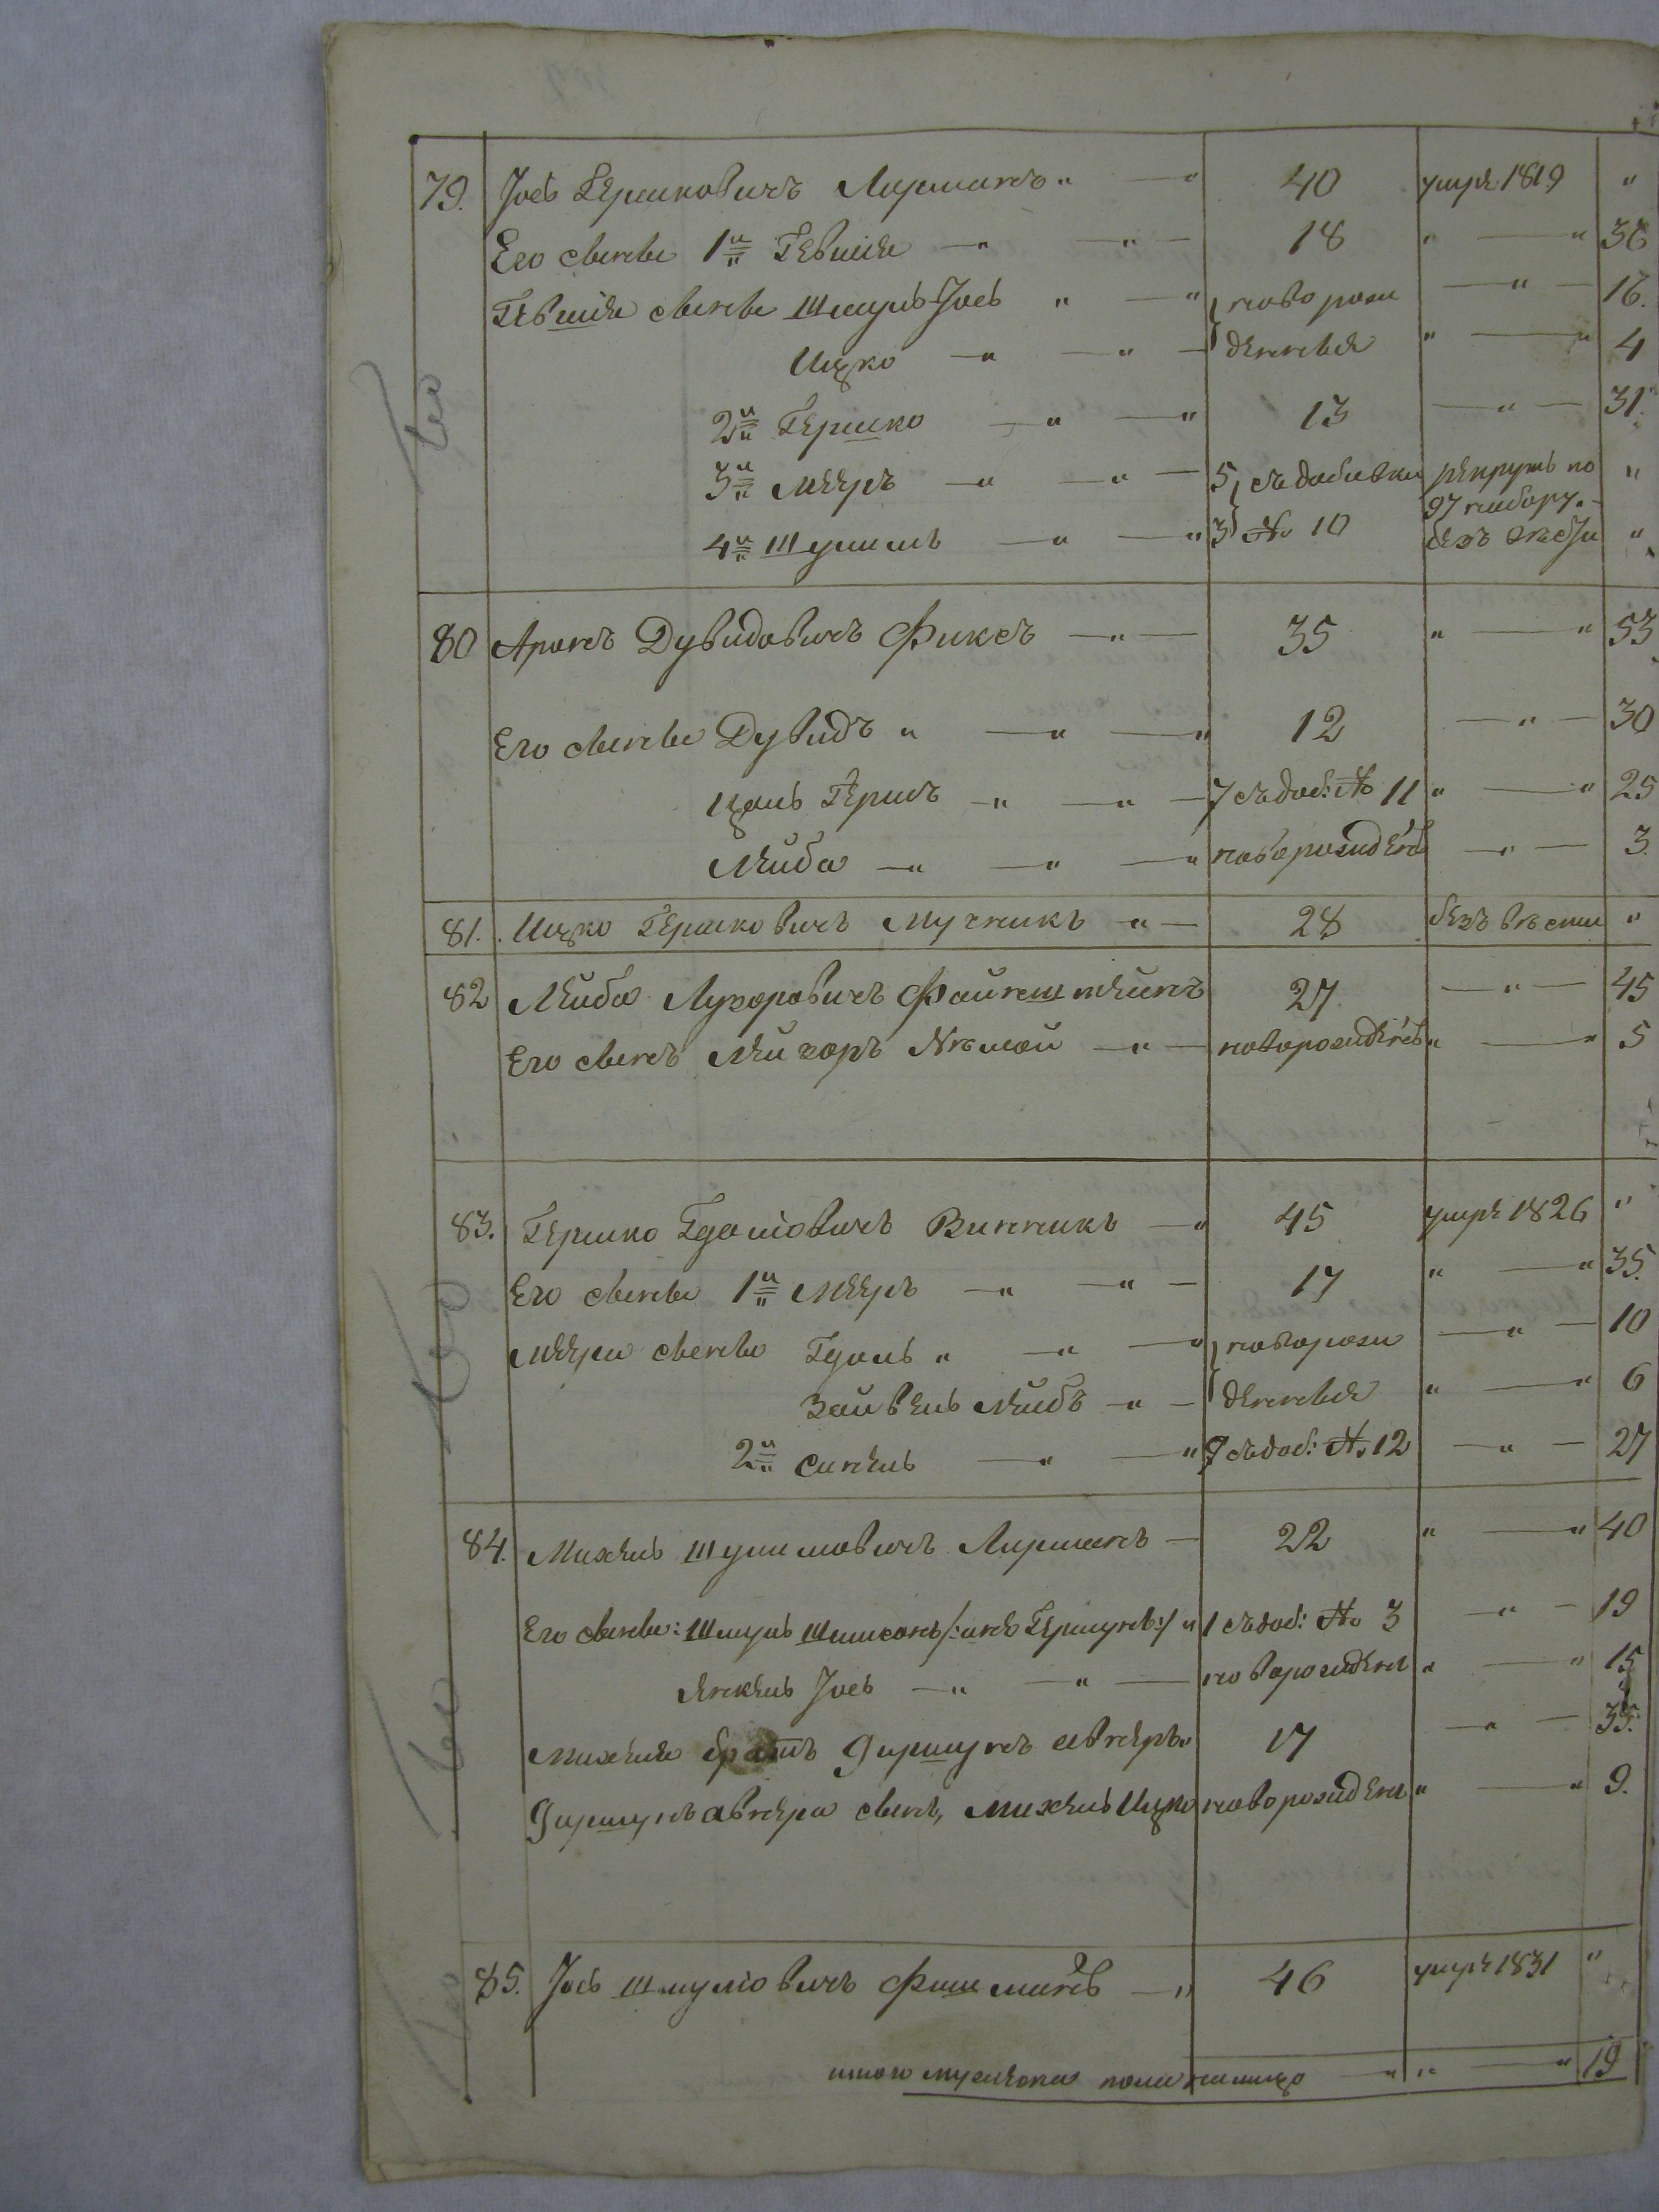 79. Іось Гершковичъ Лирманъ " — " 40 умре 1819 "
Его сыновья 1й Гевшія — " — " — 18 " — " 36
Гевшія сыновья Шмуль Іось " — " новорож — " — 16.
Ицко — " — " — денныя " — " 4
2й Гершко — " — " 13 — " — 31.
3й Мееръ — " — " — 5 съ добавки рекрутъ по "
97 набору.
4й Шулимъ — " — " 3 № 10 безъ "
80 Аронъ Дувидовичъ Фиксъ — " — 35 " — " 53
Его сыновья Дувидъ " — " — " 12 — " — 30
Цаль Гершъ — " — " — 7 съ доб: № 11 " — " 25
Лейба — " — " — " новорожденъ — " — 3.
81. Ицко Гершковичъ Мучникъ — " — 28 безъ вѣсти "
82 Лейба Лузоровичъ Файнштейнъ 27 — " — 45
Его сынъ Лейзоръ — " — новорожденъ " — " 5
83. Гершко Гдаліовичъ Винникъ — " 45 умре 1826 "
Его сыновья 1й Мееръ — " — " — 17 " — " 35.
Меера сыновья Гдаль " — " — " новорож — " — 10
Зайвель Лейбъ — " — денныя " — " 6
2й Синхель — " — " 9 съ доб: № 12 — " — 27
84. Михель Шулимовичъ Лирманъ — 22 " — " 40
Его сыновья: Шмуль Шимсонъ /: онъ Гершунъ :/ " 1 съ доб: № 3 — " — 19
Янкель Іось — " — " — новорожден " — " 15
Михеля братъ Гиршунъ Авнеръ " 17 — " — 35.
Гиршунъ Авнера сынъ, Михель Ицко новорожден " — " 9.
85. Іось Шмуліовичъ Фишманъ — " 46 умре 1831 "
итого мужеска пола налицо — " " — " 19